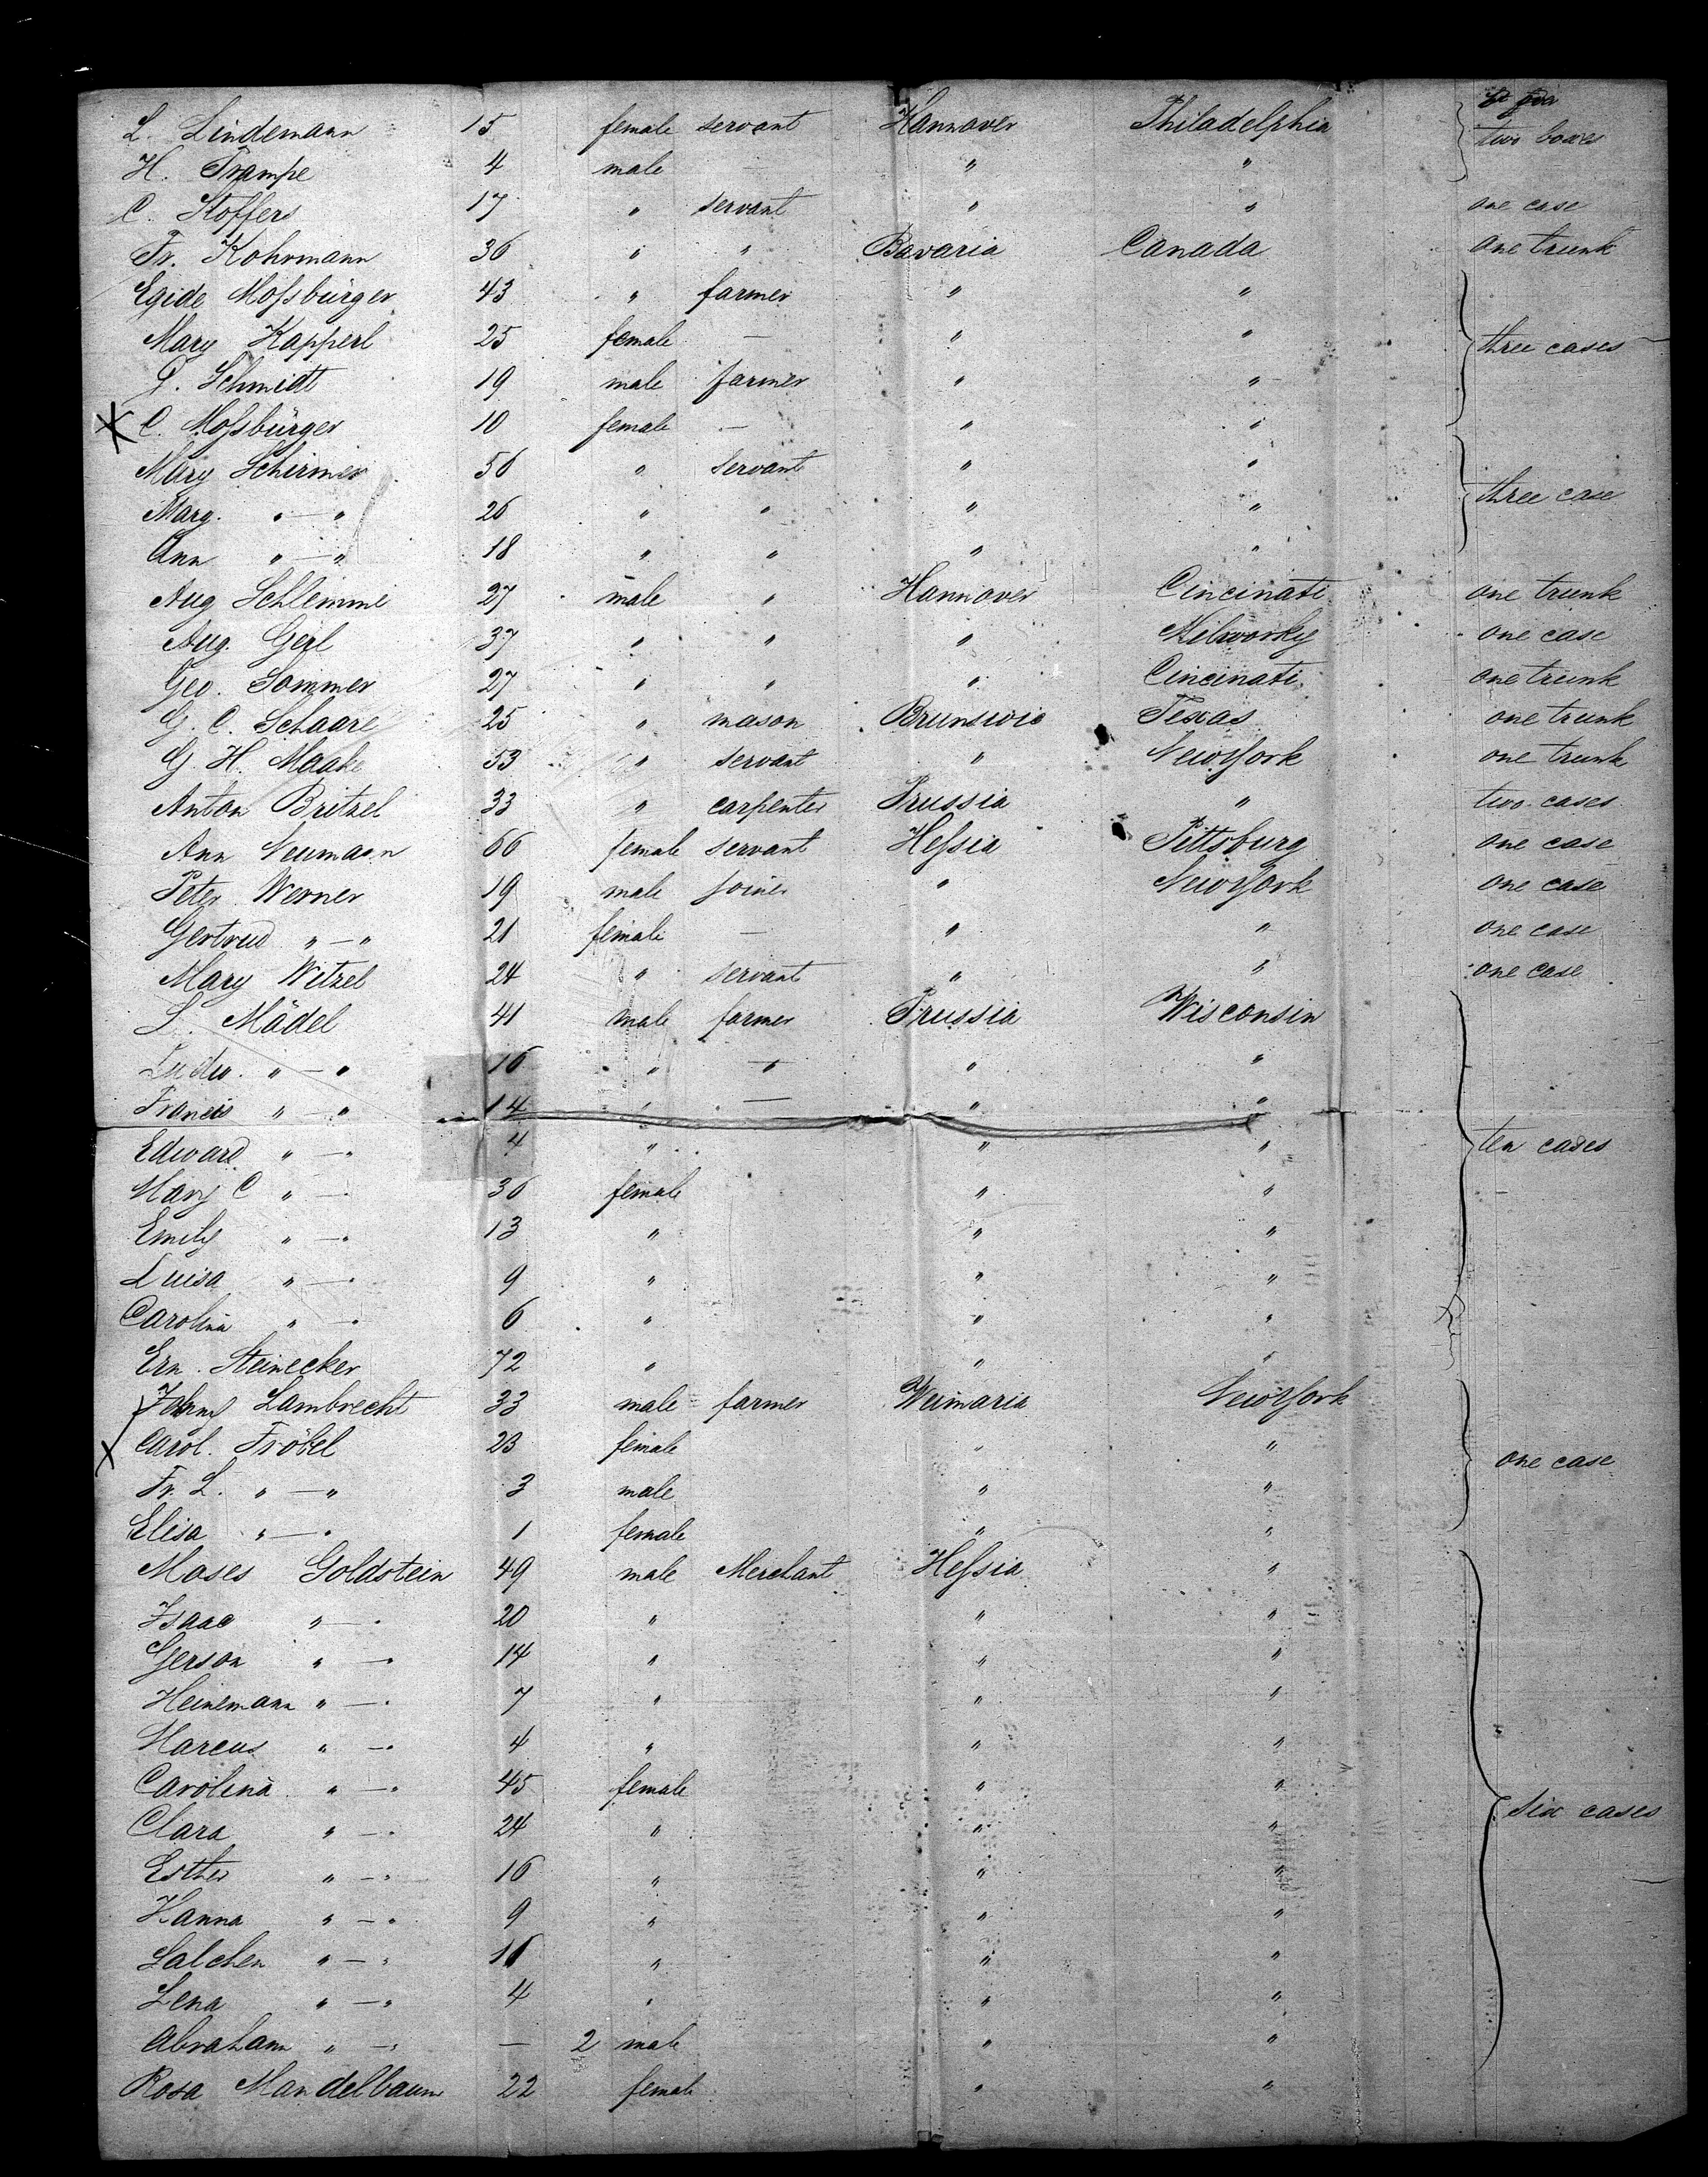 L. Lindemann 15 female servant Hannover Philadelphia two boxes
H. Trampe 4 male — " "
C. Stoffers 17 " servant " " one case
Fr. Kohrmann 36 " " Bavaria Canada one trunk
Egide Moſsbürger 43 " farmer " "
Mary Kapperl 25 female — " " three cases
P. Schmidt 19 male farmer " "
C. Moſsbürger 10 female — " "
Mary Schirmer 56 " servant " "
Marg. " — " 26 " " " " three case
Ann " — " 18 " " " "
Aug Schlemme 27 male " Hannover Cincinati one trunk
Aug. Gerl 37 " " " Milworky one case
Geo. Sommer 27 " " " Cincinati one trunk
G. C. Schaare 25 " mason Brunswic Texas one trunk
G. H. Maake 53 " servant " NewYork one trunk
Anton Britzel 33 " carpenter Prussia " two cases
Ann Neumann 66 female servant Heſsia Pittsburg one case
Peter Werner 19 male joiner " NewYork one case
Gertrud " — " 21 female — " " one case
Mary Witzel 24 " servant " " one case
L. Mädel 41 male farmer Prussia Wisconsin
Ludw. " — " 16 " — " "
Francis " — " 14 " — " "
Edward " — " 4 " " " ten cases
Mary C " — " 36 female " "
Emily " — " 13 " " "
Luisa " — " 9 " " "
Carolina " — " 6 " " "
Ern. Steinecker 72 " " "
Lambrecht 33 male farmer Weimaria NewYork
Carol. Fröbel 23 female " " one case
Fr. L. " — " 3 male " "
Elisa " — " 1 female " "
Moses Goldstein 49 male Merchant Heſsia "
Isaac " — " 20 " " "
Gerson " — " 14 " " "
Heinemann " — " 7 " " "
Marcus " — " 4 " " "
Carolina " — " 45 female " "
Clara " — " 24 " " " six cases
Esther " — " 16 " " "
Hanna " — " 9 " " "
Salchen " — " " " "
Lena " — " 4 " " "
Abraham " — " — 2 male " "
Rosa Mandelbaum 22 female " "